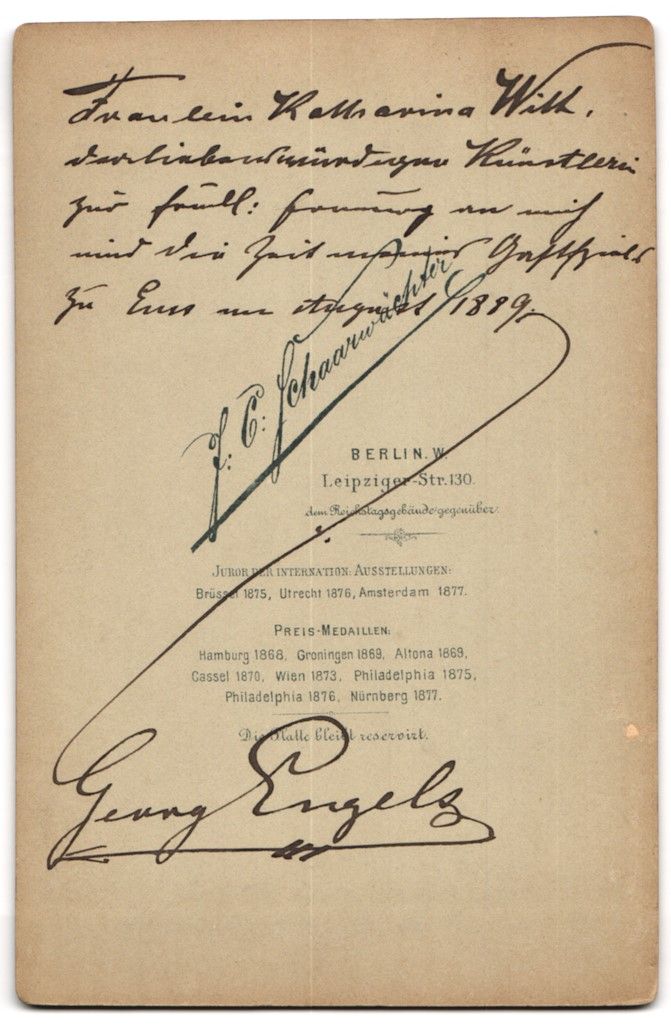 Fraulein Katharina Witt.
der liebenswürdigen Künstlerin
zur frdl: Erinnerung an mich
und die Zeit meines Gastspiels
zu Ems im August 1889.
J. C. Schaarwächter
BERLIN. W.
Leipziger-Str. 130.
dem Reichstagsgebäude gegenüber.
JUROR DER INTERNATION: AUSSTELLUNGEN:
Brüssel 1875, Utrecht 1876, Amsterdam 1877.
PREIS-MEDAILLEN:
Hamburg 1868, Groningen 1869, Altona 1869,
Cassel 1870, Wien 1873, Philadelphia 1875,
Philadelphia 1876, Nürnberg 1877.
Die Platte bleibt reservirt.
Georg Engels